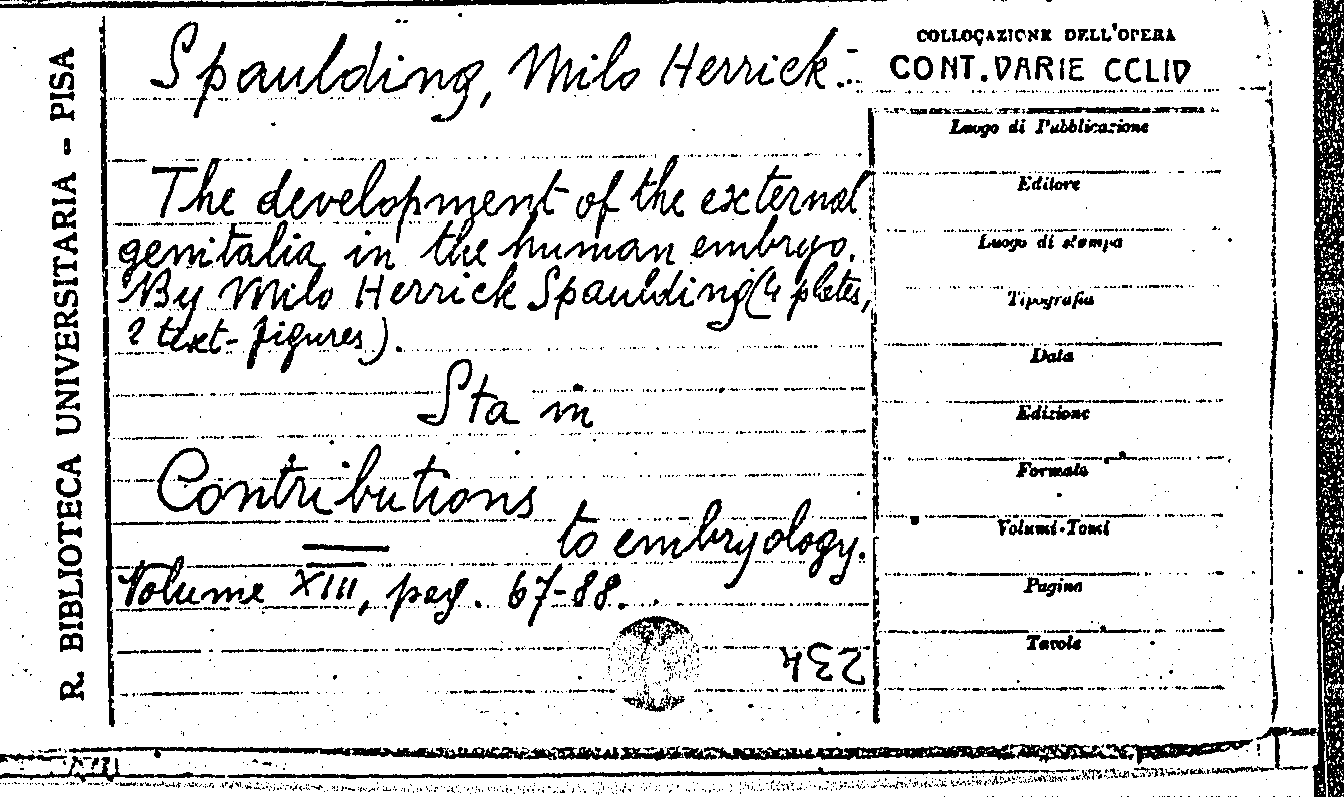 R. BIBLIOTECA UNIVERSITARIA - PISA
Spaulding, Milo Herrick.-
COLLOCAZIONE DELL'OPERA
CONT. VARIE CCLIV
The development of the external
genitalia in the human embryo.
By Milo Herrick Spaulding (4 plates,
2 text-figures).
Sta in
Contributions
to embryology.
Volume XIII, pag. 67-88.
234
Luogo di Pubblicazione
Editore
Luogo di stampa
Tipografia
Data
Edizione
Formato
Volumi-Tomi
Pagine
Tavole